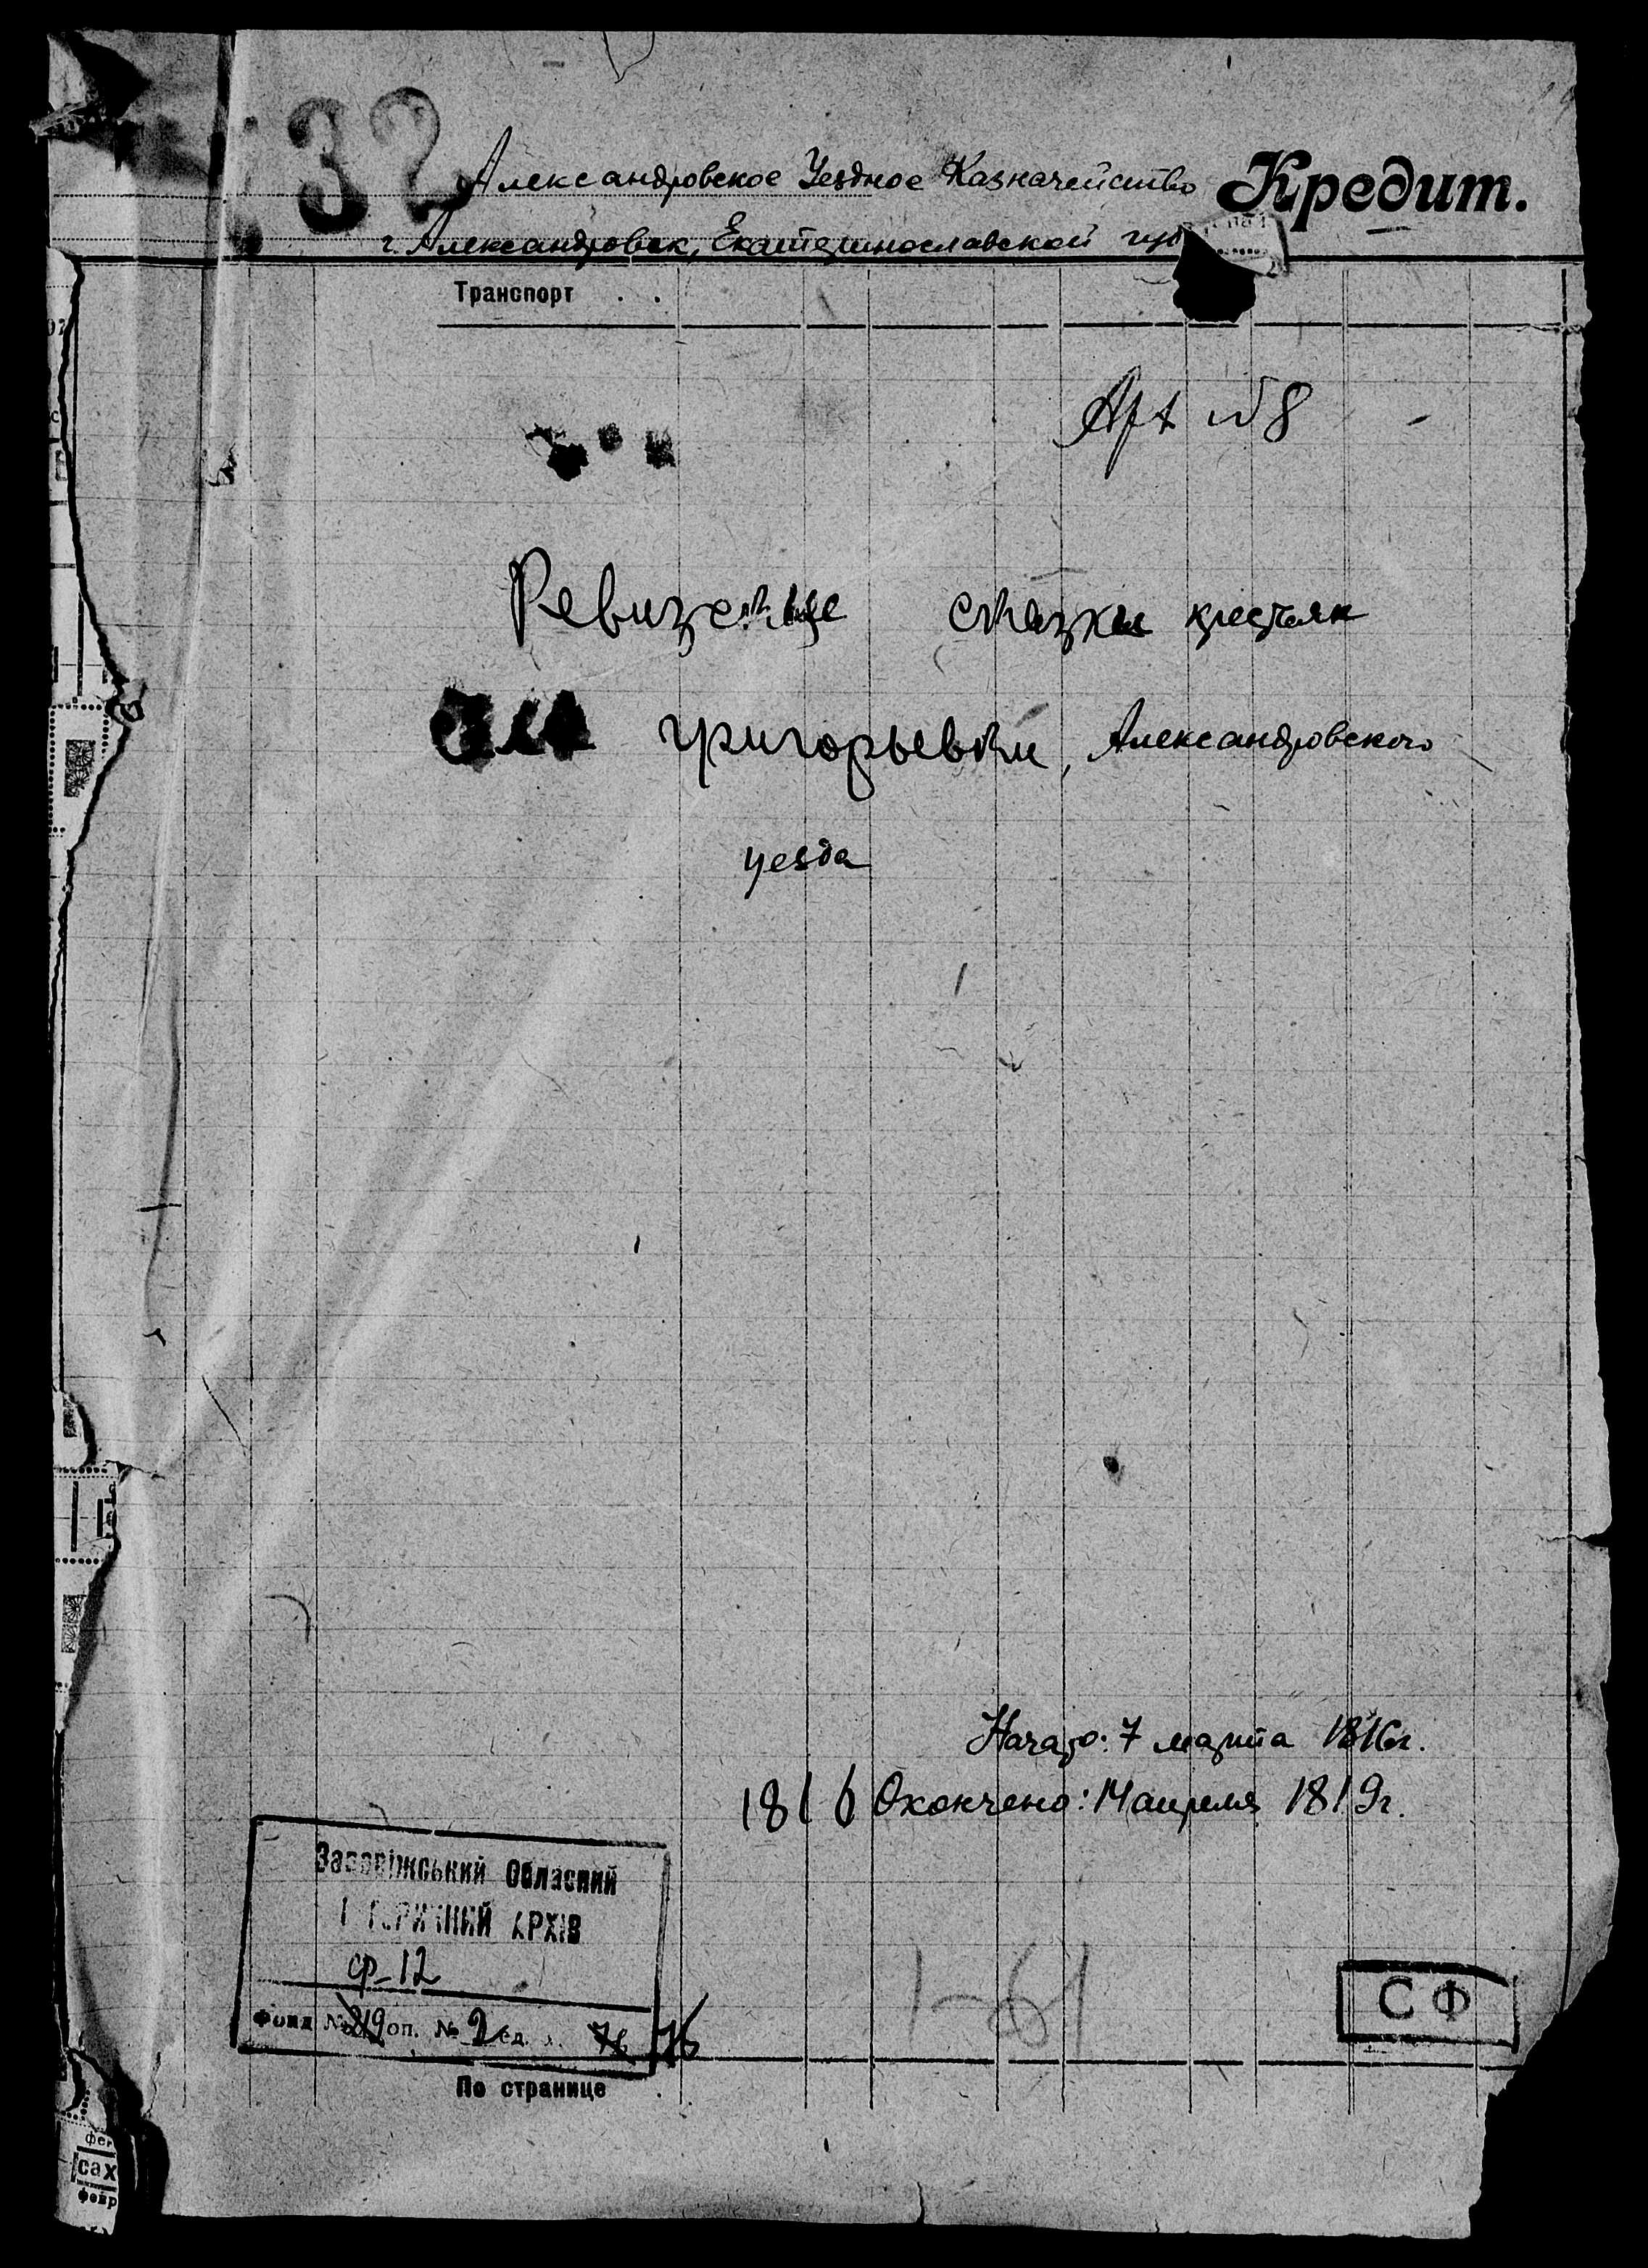 32
Александровское Уездное Казначейство Кредит.
г. Александровск, Екатеринославской губ
Транспорт . .
Арх №8
Ревизские сказки крестьян
Григорьевки, Александровского
уезда
Начато: 7 марта 1816г.
1816 Окончено: 14 апреля 1819г.
Запоріжський Обласний
ІСТОРИЧНИЙ АРХІВ
ф-12
Фонд № 219 оп. № 2 ед. 76
1-61
СФ
По странице
фев
сах
февр